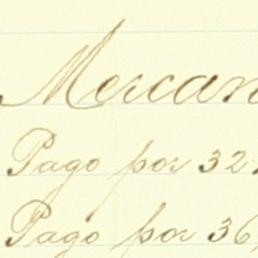 Mercan
Pago por 32
Pago por 36